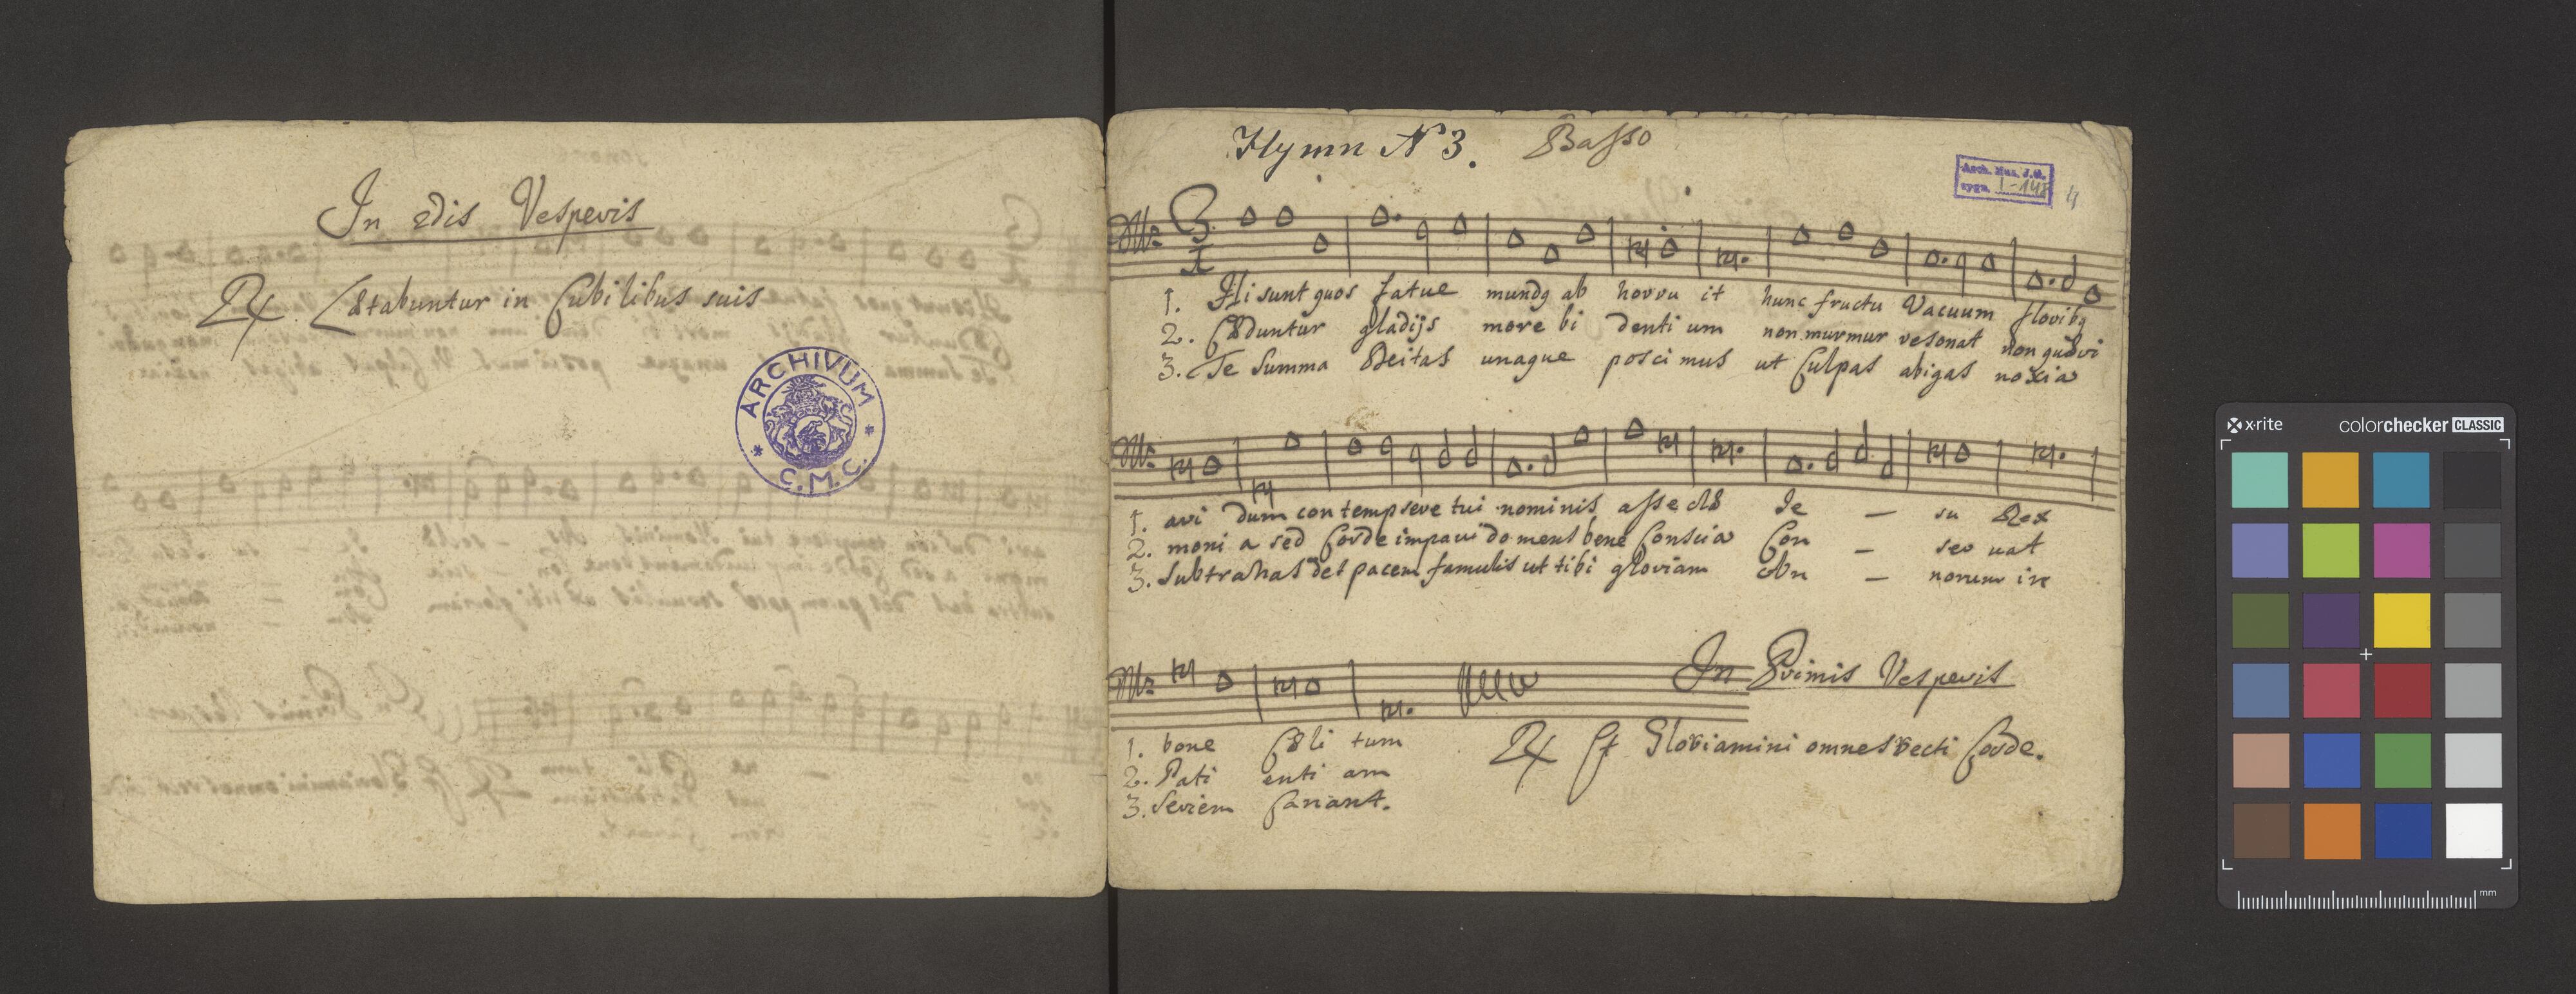 In 2dis Vesperis
Rx. Lætabuntur in Cubilibus suis
ARCHIVUM
* C.M.C. *
Hymn N 3. Basso
Arch. Mus. J.G.
sygn. I-148
4
3
1
1. Hi sunt quos fatue mundq ab horru it hunc fructu Vacuum floribq
2. Cæduntur gladijs more bi denti um non murmur resonat non quæri
3. Te Summa Deitas unaque posci mus ut Culpas abigas noxia
1. ari dum con tempsere tui nominis asse clæ Je — su Rex
2. moni a sed Corde impavi do mens bene Conscia Con — ser vat
3. Subtrahas det pacem famulis ut tibi gloriam An — norum in
In Primis Vesperis
1. bone Cæli tum
2. Pati enti am
3. Seriem Canant.
Rx Et Gloriamini omnes recti Corde.
x-rite colorchecker CLASSIC
mm